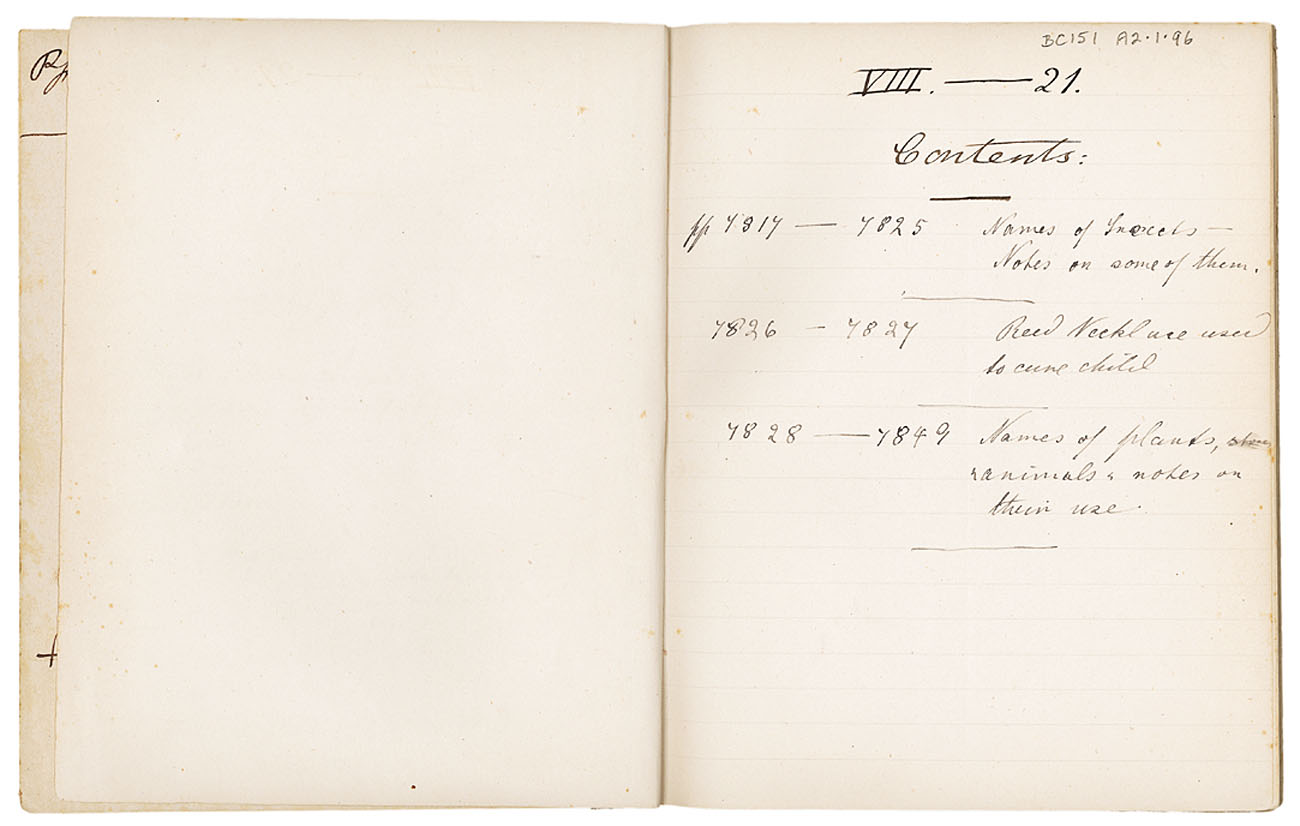 BC151 A2.1.96
VIII. — 21.
Contents:
pp 7817 — 7825 Names of Insects —
Notes on some of them.
7826 — 7827 Reed Necklace used
to cure child
7828 — 7849 Names of plants,
& animals & notes on
their use.